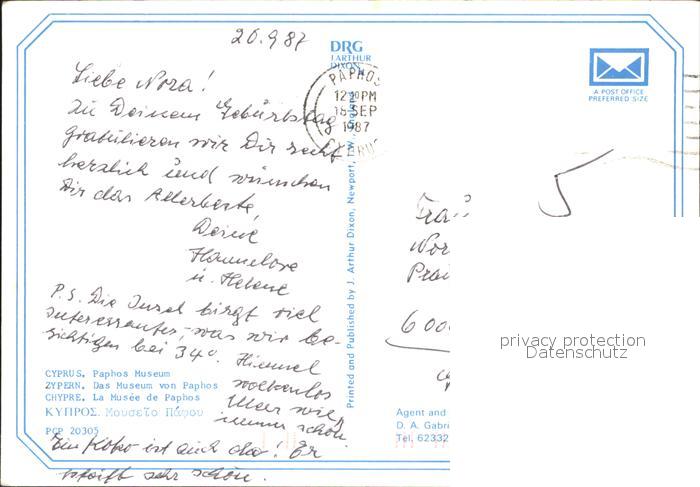 20.9.87
DRG
J. ARTHUR
DIXON
A POST OFFICE
PREFERRED SIZE
PAPHOS
12 PM
18 SEP
1987
CYPRUS
Liebe Nora!
Zu Deinem Geburtstag
gratulieren wir Dir recht
herzlich und wünschen
Dir das Allerbeste,
Deine
Hannelore
u. Helene
P.S. Die Insel birgt viel
interessantes, was wir be-
sichtigen bei 34°. Himmel
wolkenlos
Meer wie
immer schön.
Ein Koko ist auch da! Er
schreit sehr schön.
CYPRUS, Paphos Museum
ZYPERN, Das Museum von Paphos
CHYPRE, La Musée de Paphos
ΚΥΠΡΟΣ, Μουσεῖο Πάφου
PCP 20305
Printed and Published by J. Arthur Dixon, Newport, I.W., England
Frau
Nor
600
Agent and
D. A. Gabri
Tel. 62332
privacy protection
Datenschutz